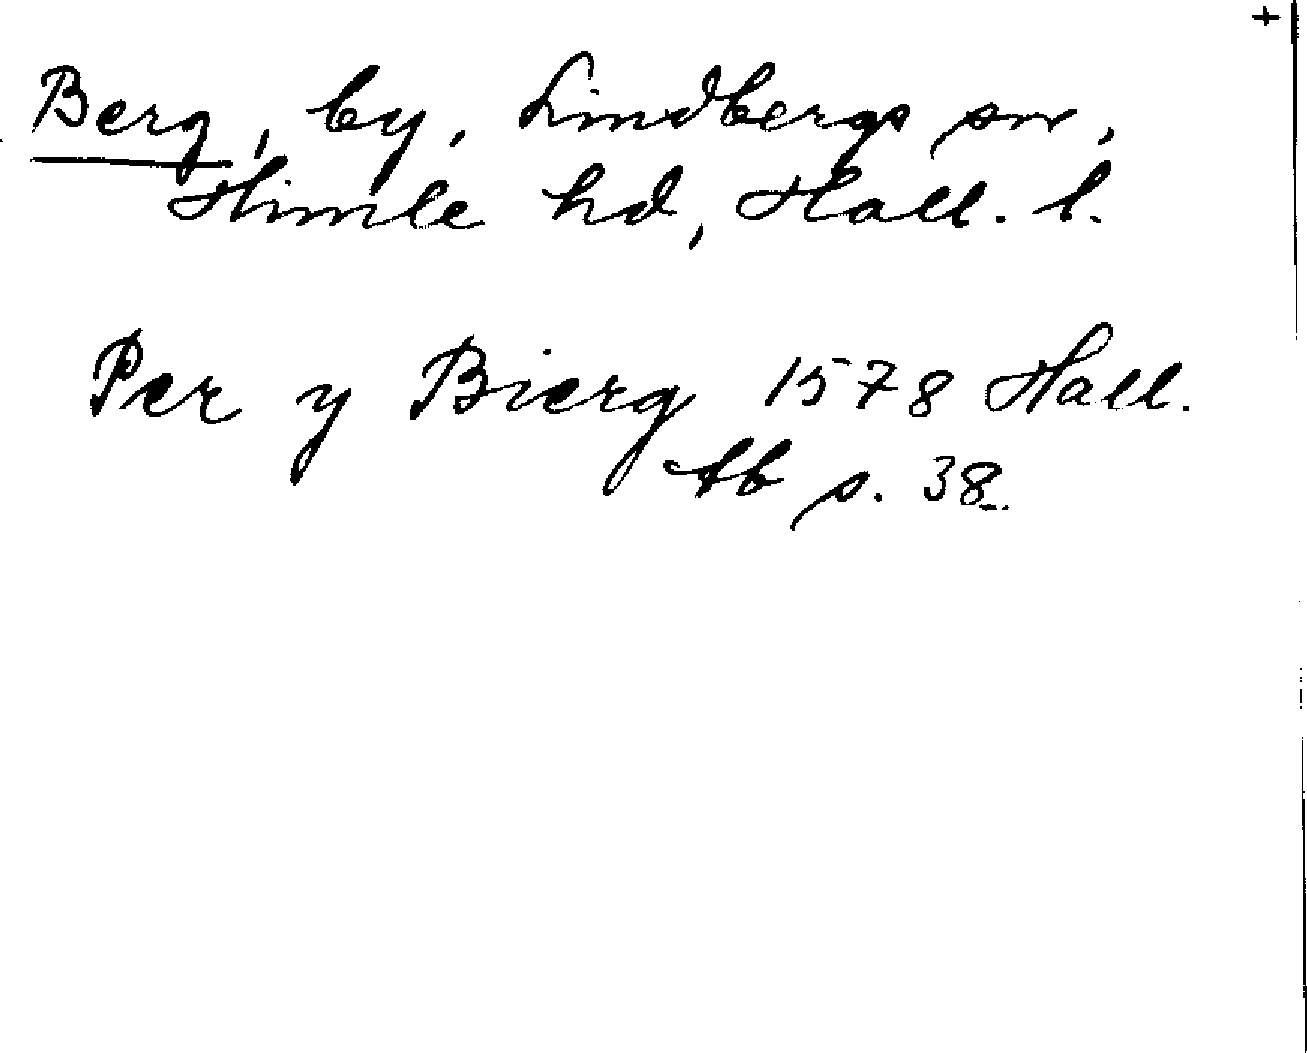 +
Berg, by, Lindbergs sn,
Himle hd, Hall. l.
Per y Bierg 1578 Hall.
tb s. 38.